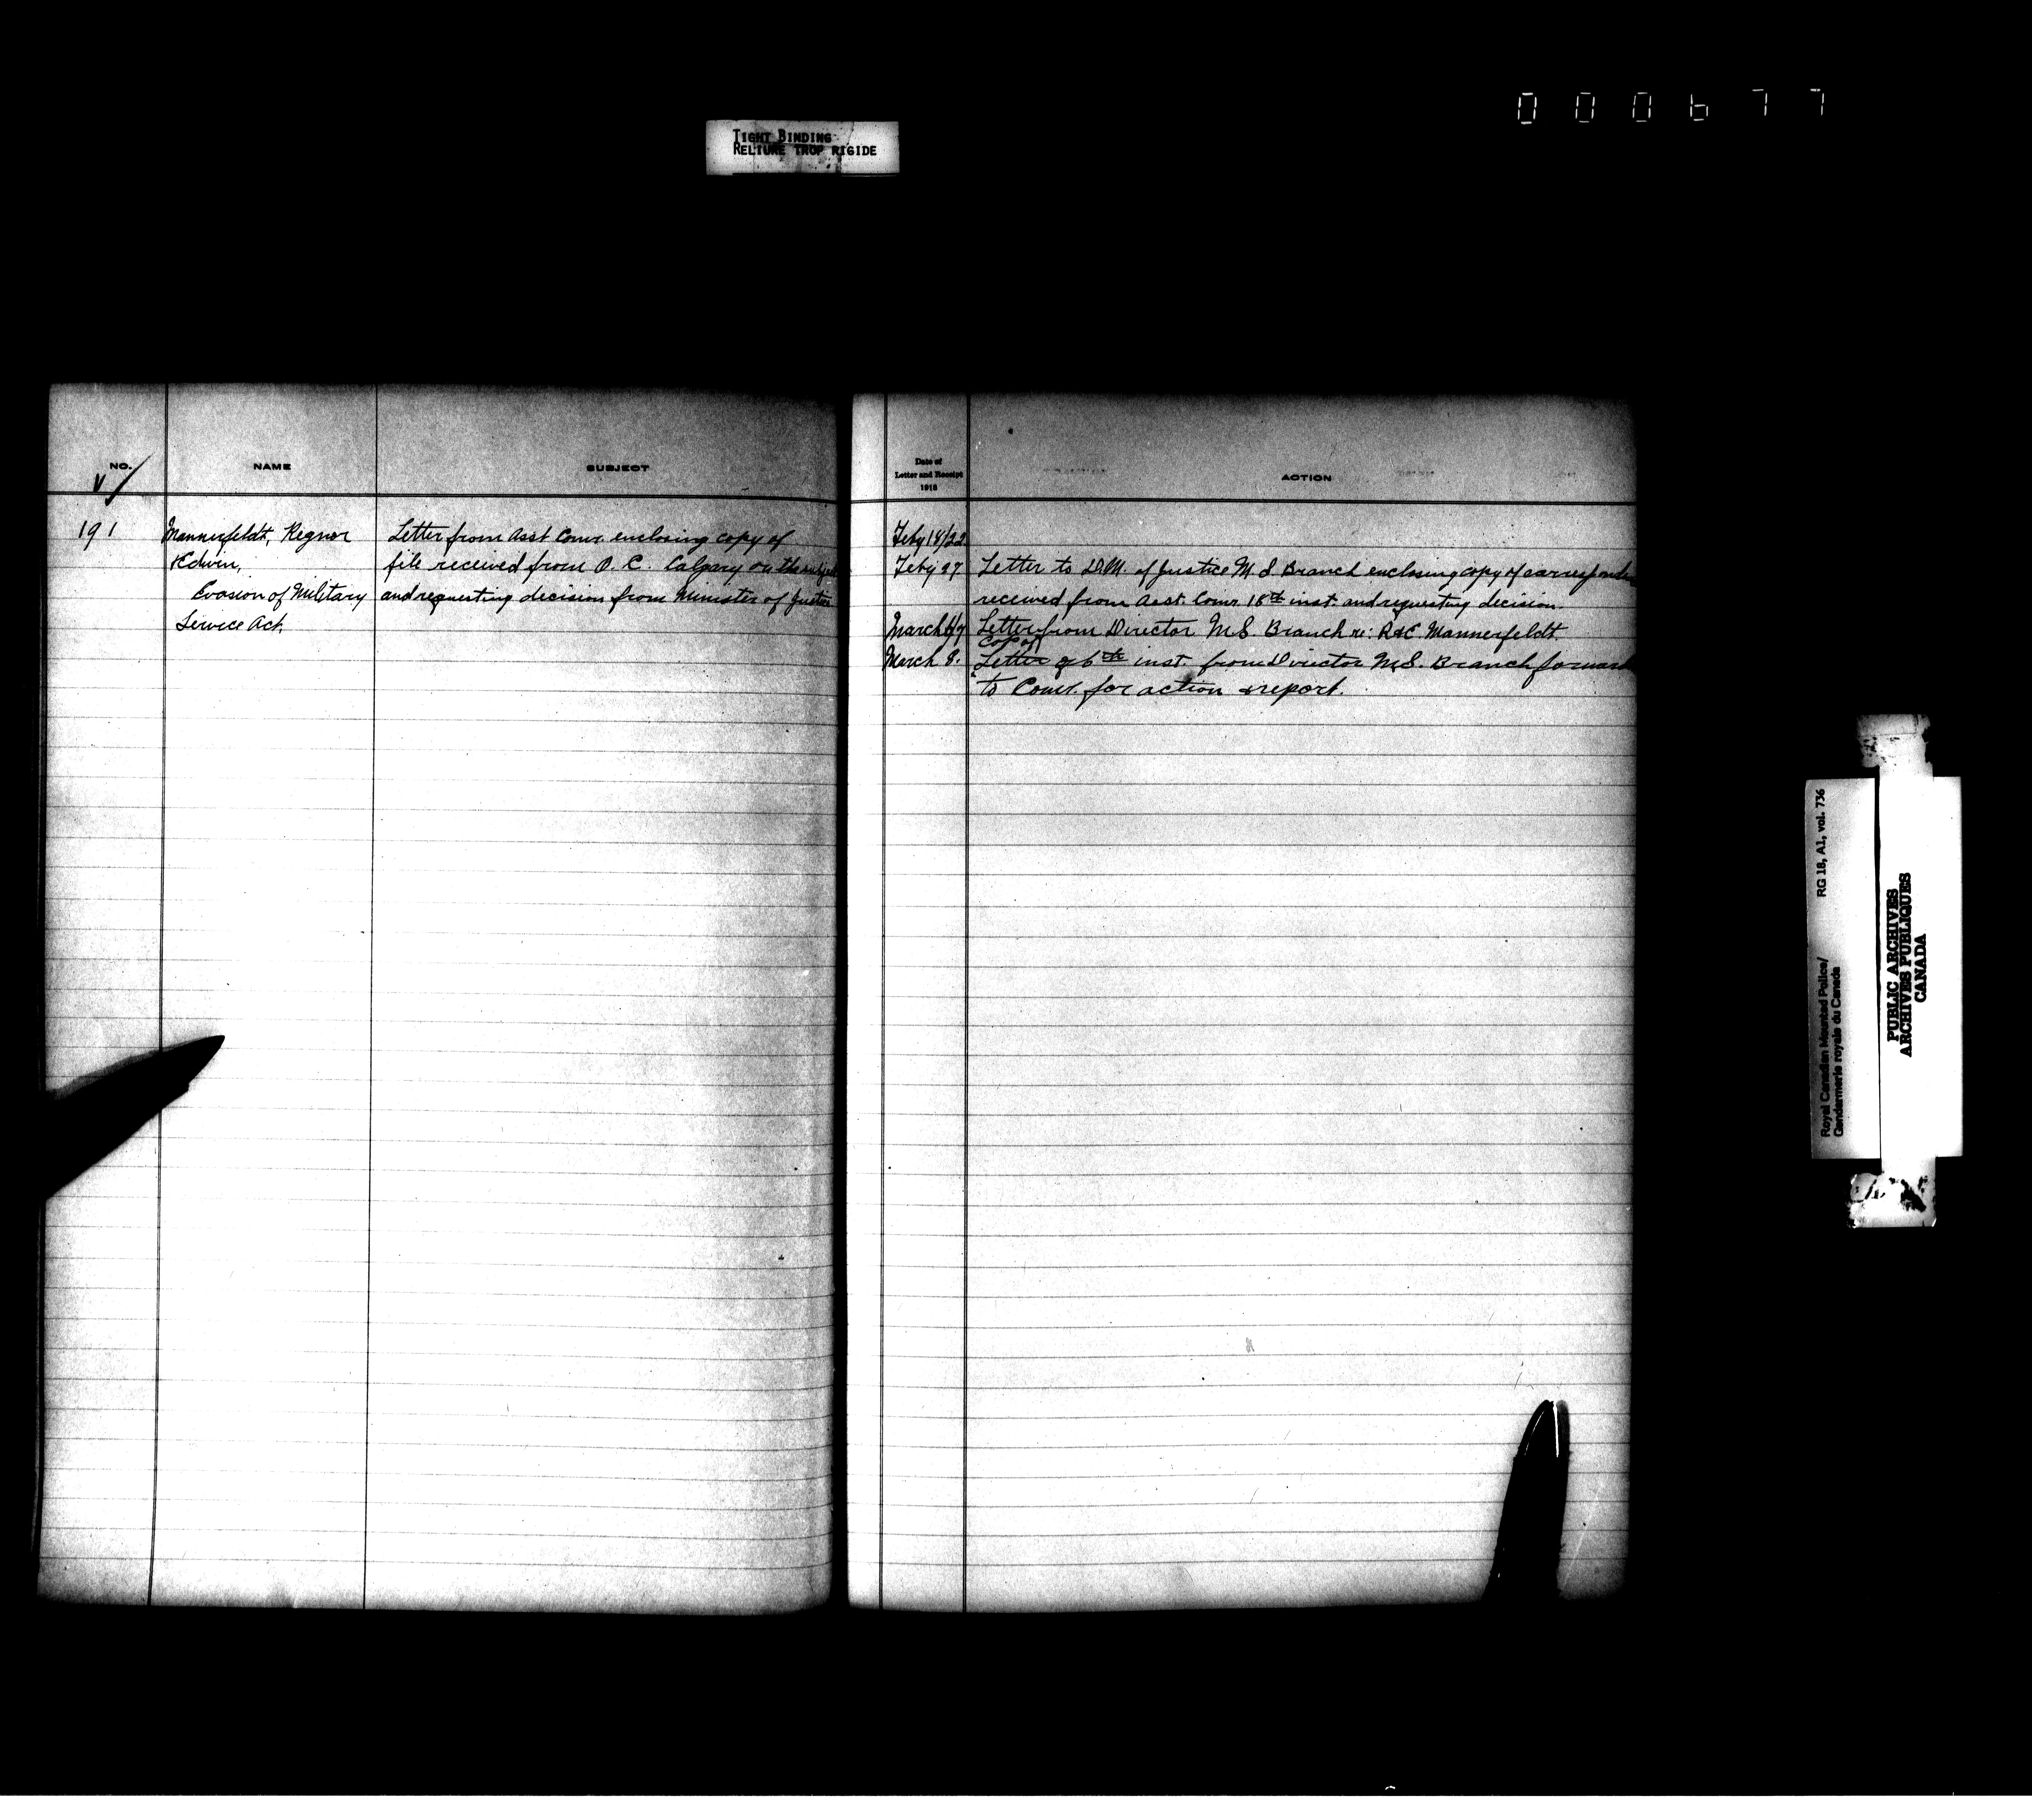 000677
TIGHT BINDING
RELIURE TROP RIGIDE
NO.
NAME
SUBJECT
191
Mannerfeldt, Regnor
Edwin,
Evasion of Military
Service Act.
Letter from Asst Comr. enclosing copy of
file received from O. C. Calgary on the subject
and requesting decision from Minister of Justice
Date of
Letter and Receipt
1918
ACTION
Feby 18/22
Feby 27 Letter to D.M. of Justice M. S. Branch enclosing copy of
received from Asst. Comr. 18th inst. and requesting decision.
March 6/7 Letter from Director M.S. Branch re: R & E Mannerfeldt.
Copy of
March 8. Letter of 6th inst. from Director M.S. Branch forward
to Comr. for action & report.
RG 18, A1, vol. 736
Royal Canadian Mounted Police/
Gendarmerie royale du Canada
PUBLIC ARCHIVES
ARCHIVES PUBLIQUES
CANADA